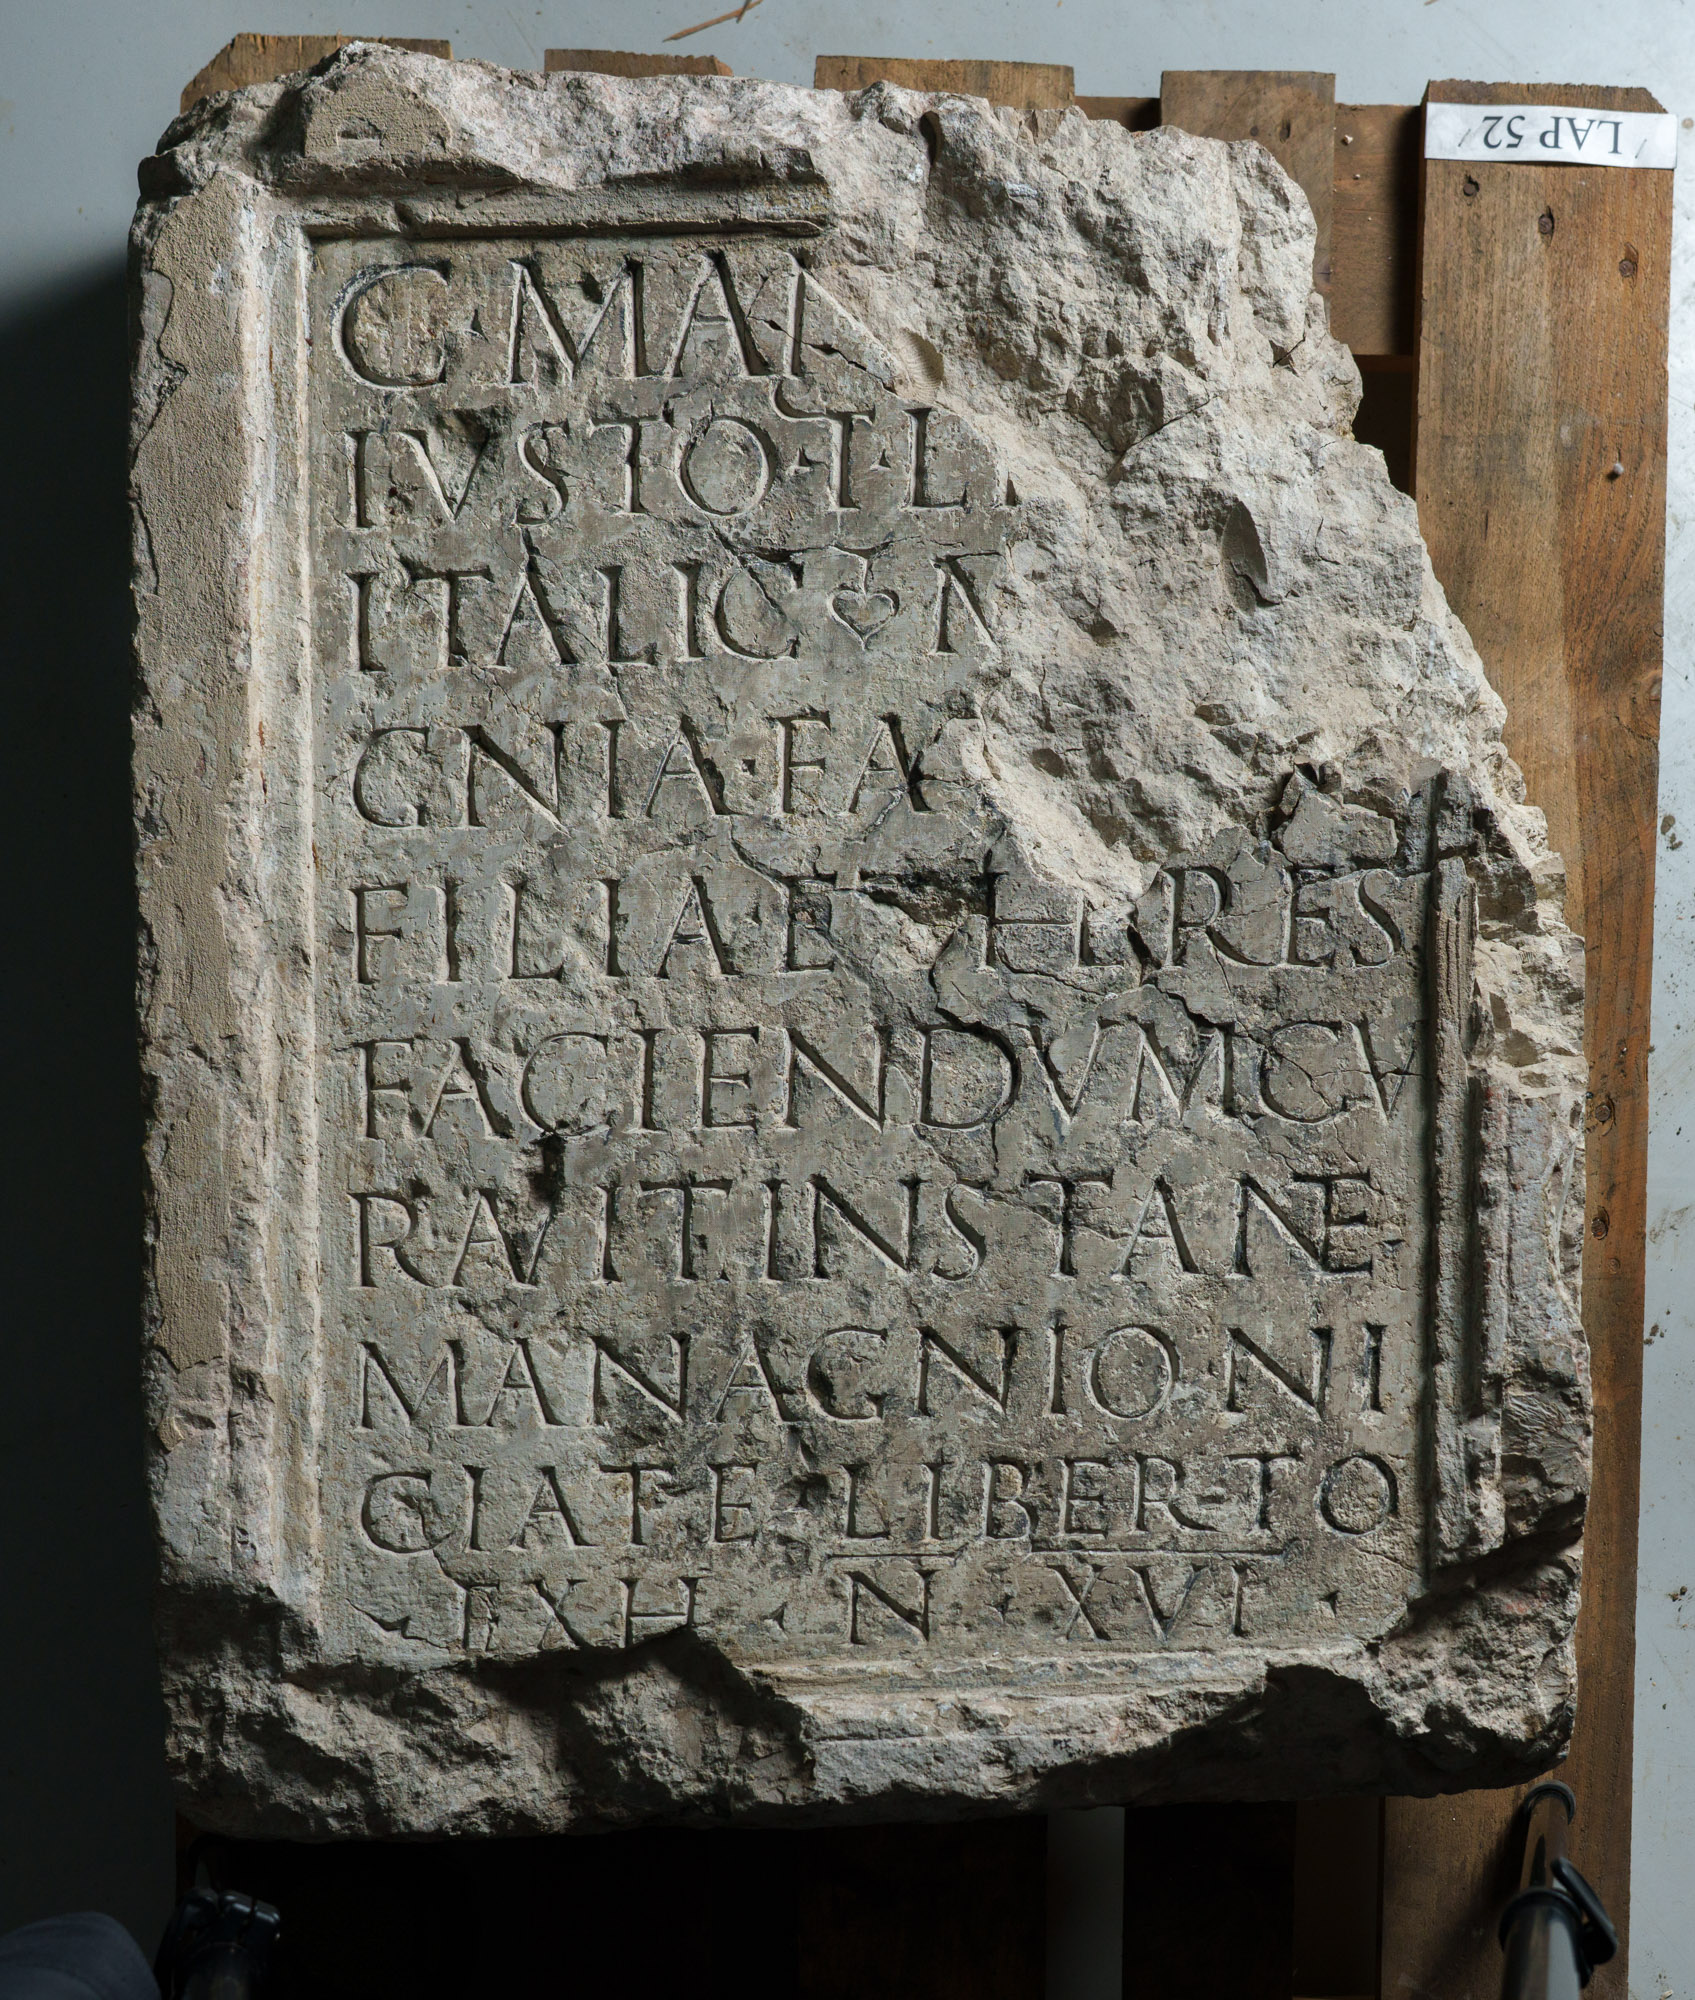 C · MAN
IVSTO · T · LI
ITALIC ❦ M
GNIA · FA
FILIAE HERES
FACIENDVM CV
RAVIT · INSTANTE
MANAGNIO NI
CIATE · LIBERTO
EX H · N · XVI ·
LAP 52